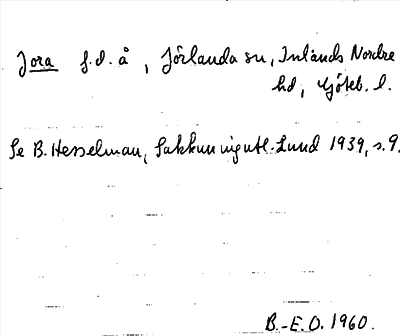 Jora f.d. å, Jörlanda sn, Inlands Nordre
hd, Göteb. l.
Se B. Hesselman, Sakkunnigutl. Lund 1939, s. 9.
B.-E.O. 1960.